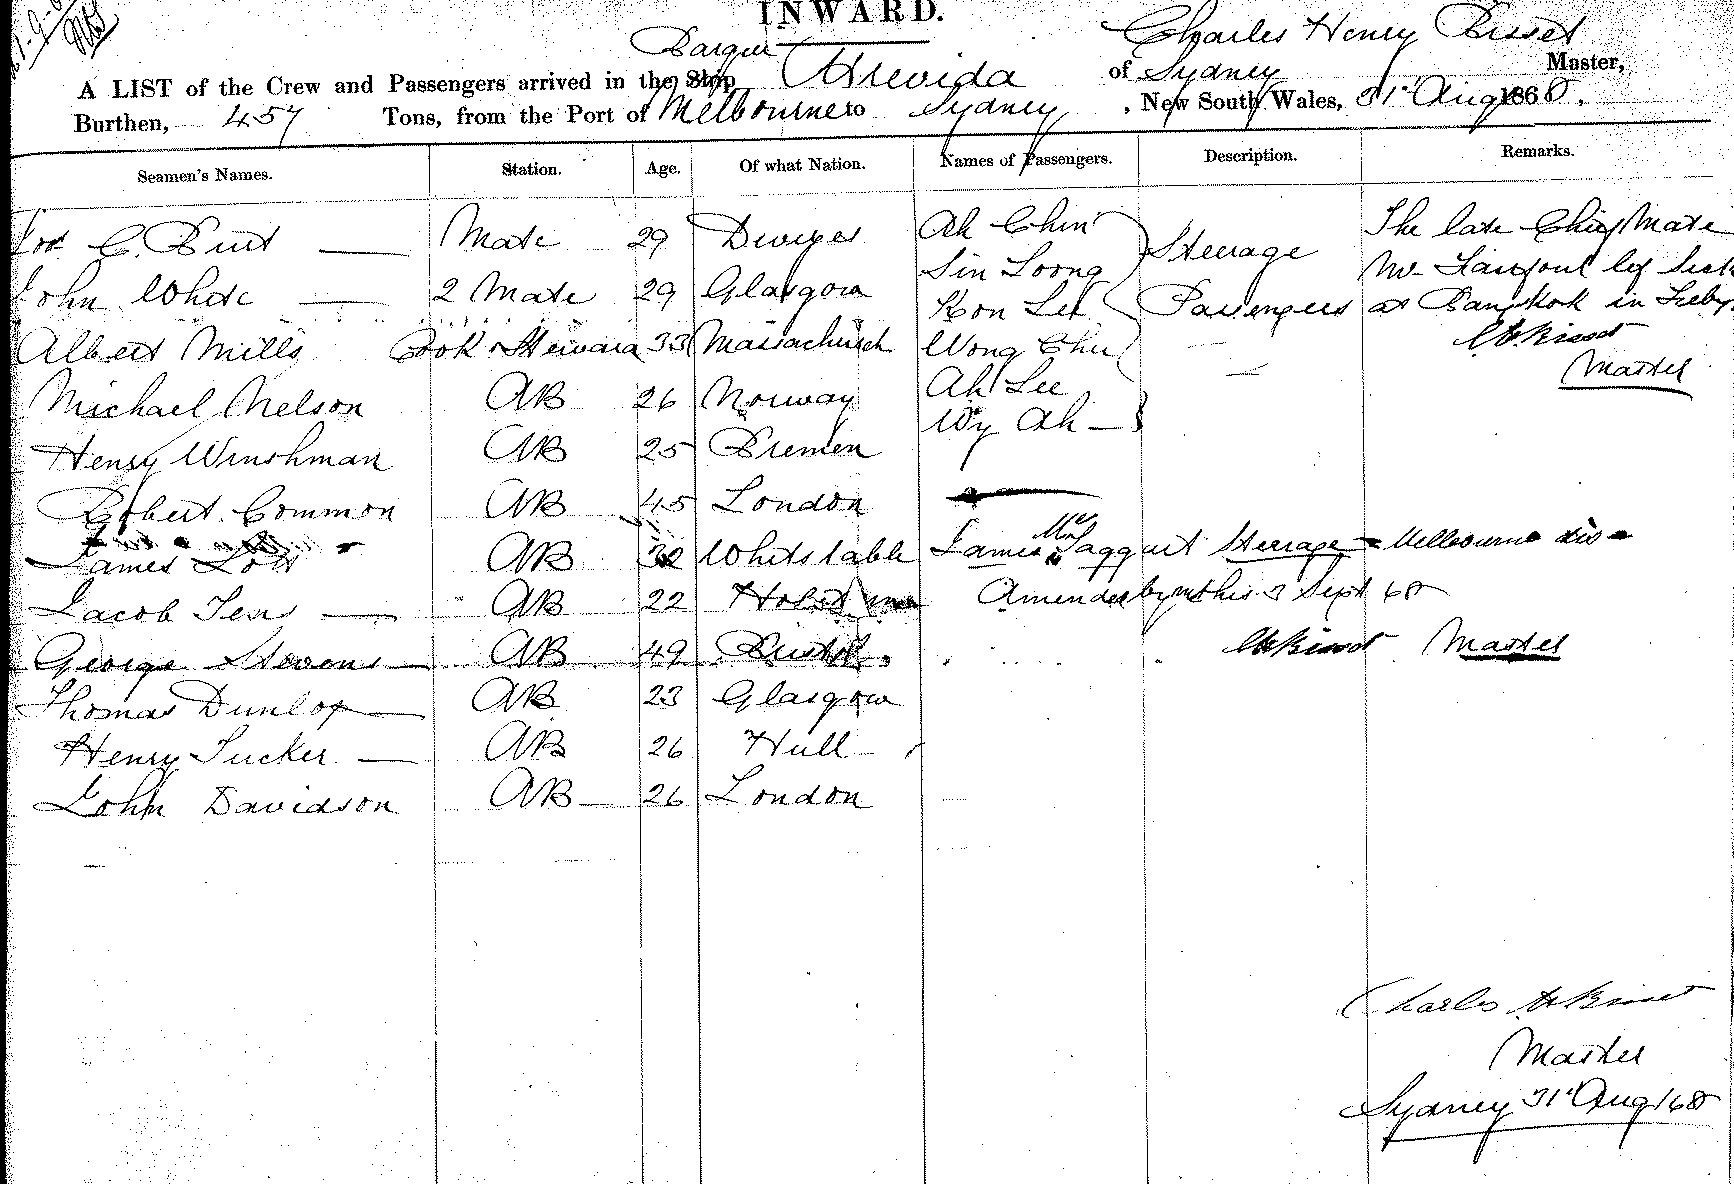 INWARD.
Barque Charles Henry Bisset
A LIST of the Crew and Passengers arrived in the Ship Atrevida of Sydney Master,
Burthen, 457 Tons, from the Port of Melbourne to Sydney, New South Wales, 31st Aug 1868.
Seamen's Names. Station. Age. Of what Nation. Names of Passengers. Description. Remarks.
C. Burt — Mate 29 Devizes Ah Chin Steerage The late Chief Mate
John White — 2 Mate 29 Glasgow Sin Loong Mr left sick
Kon Lee Passengers at Bangkok in
Albert Mills Cook & Steward 33 Massachusch Wong Chu C H Bisset
Michael Nelson AB 26 Norway Ah Lee Master
Wy Ah —
Henry Winshman AB 25 Bremen
Robert Common AB 45 London
James Lott AB 30 Whitstable James Taggart Steerage - Melbourne
Jacob Jens — AB 22 Amended by me this 3 Sept 68
George Stevens — AB 49 Bristol C H Bisset Master
Thomas Dunlop — AB 23 Glasgow
Henry Tucker — AB 26 Hull
John Davidson AB 26 London
Charles H Bisset
Master
Sydney 31st Aug 1868